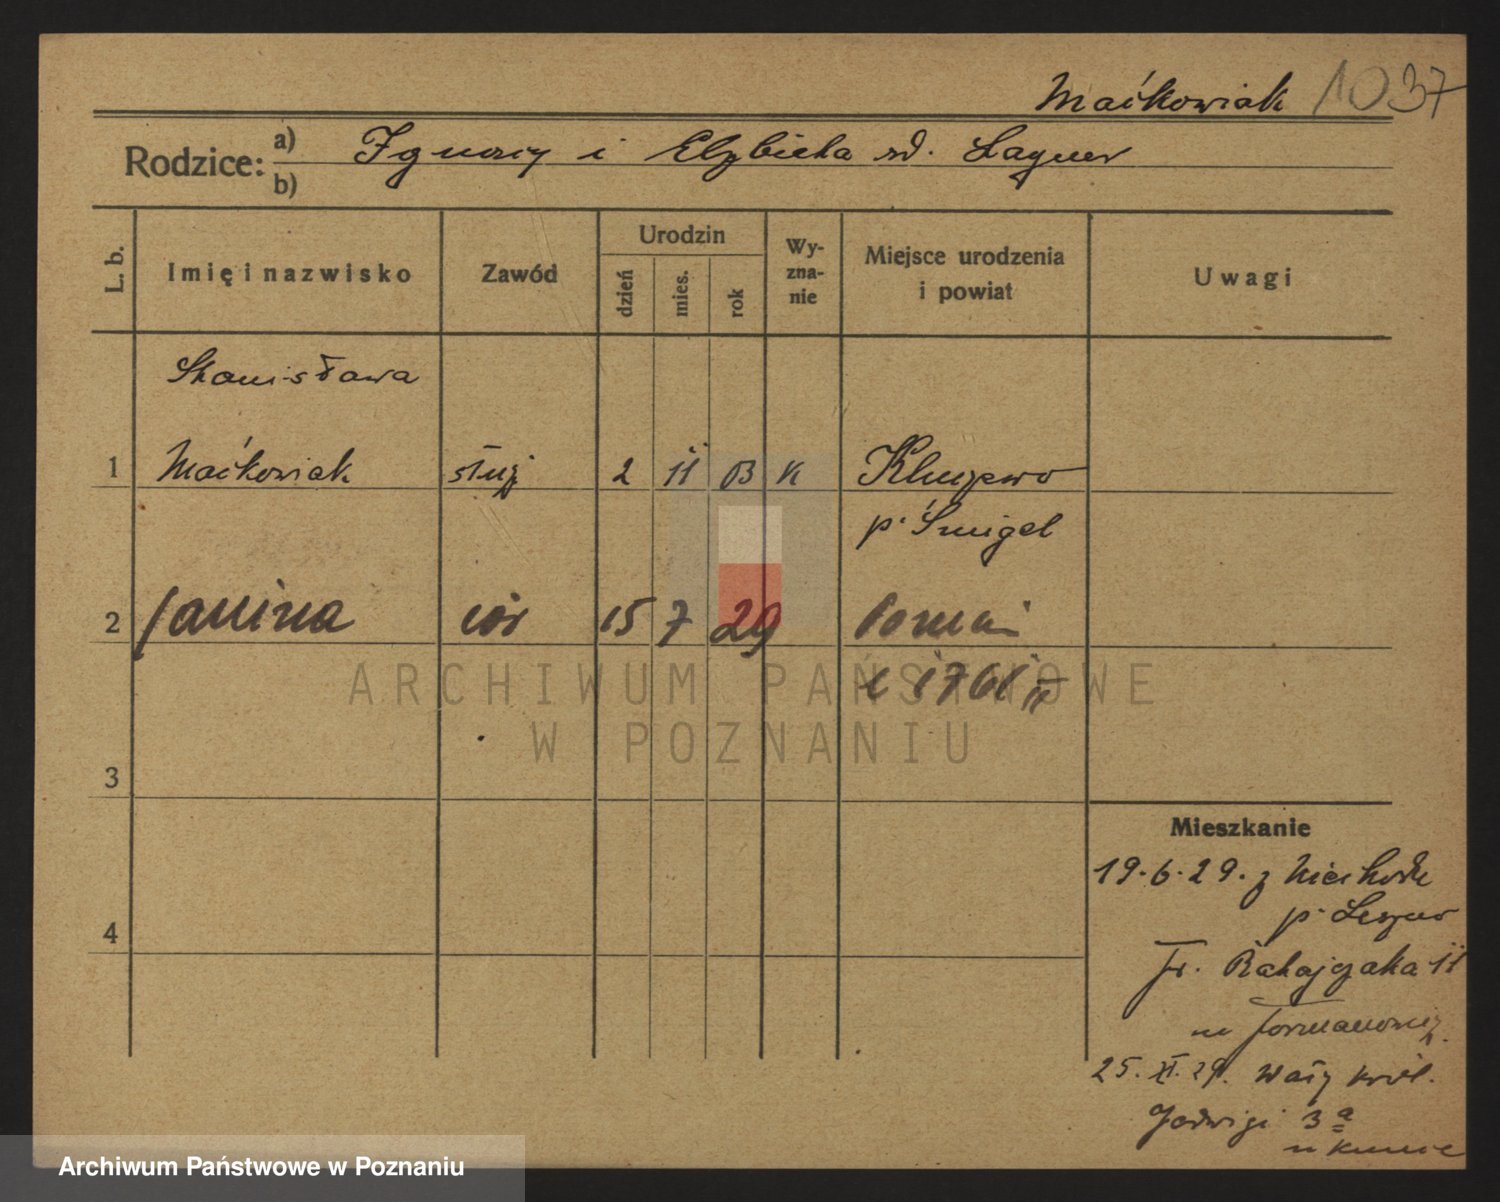 Maćkowiak 1037
Rodzice: a) Ignacy i Elżbieta zd. Lagner
b)
L. b.
Imię i nazwisko
Zawód
Urodzin
dzień
mies.
rok
Wy-
zna-
nie
Miejsce urodzenia
i powiat
Uwagi
Stanisława
1 Maćkowiak służ 2 11 03 K Kluczewo
p. Śmigel
2 Janina cór 15 7 29 Poznań
1761 II
3
4
Mieszkanie
19.6.29. z
p. Leszno
Fr. Ratajczaka 11
25.XI.29. Wały król.
Jadwigi 3a
ARCHIWUM PAŃSTWOWE
W POZNANIU
Archiwum Państwowe w Poznaniu